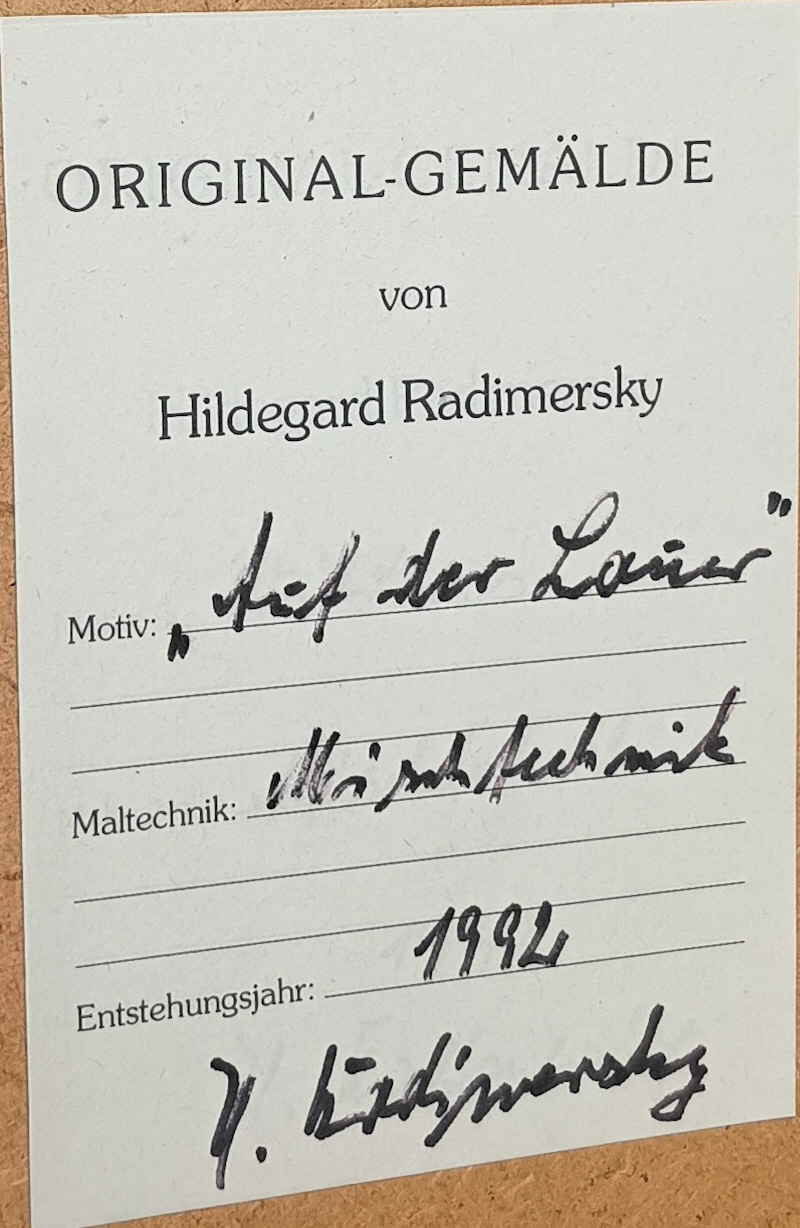 ORIGINAL-GEMÄLDE
von
Hildegard Radimersky
Motiv: „Auf der Lauer"
Maltechnik: Mischtechnik
Entstehungsjahr: 1992
H. Radimersky